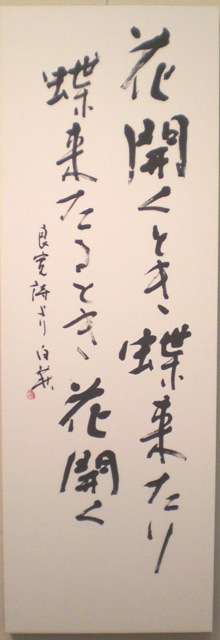 花開くとき、蝶来たり
蝶来たるとき、花開く
良寛詩より 白萩